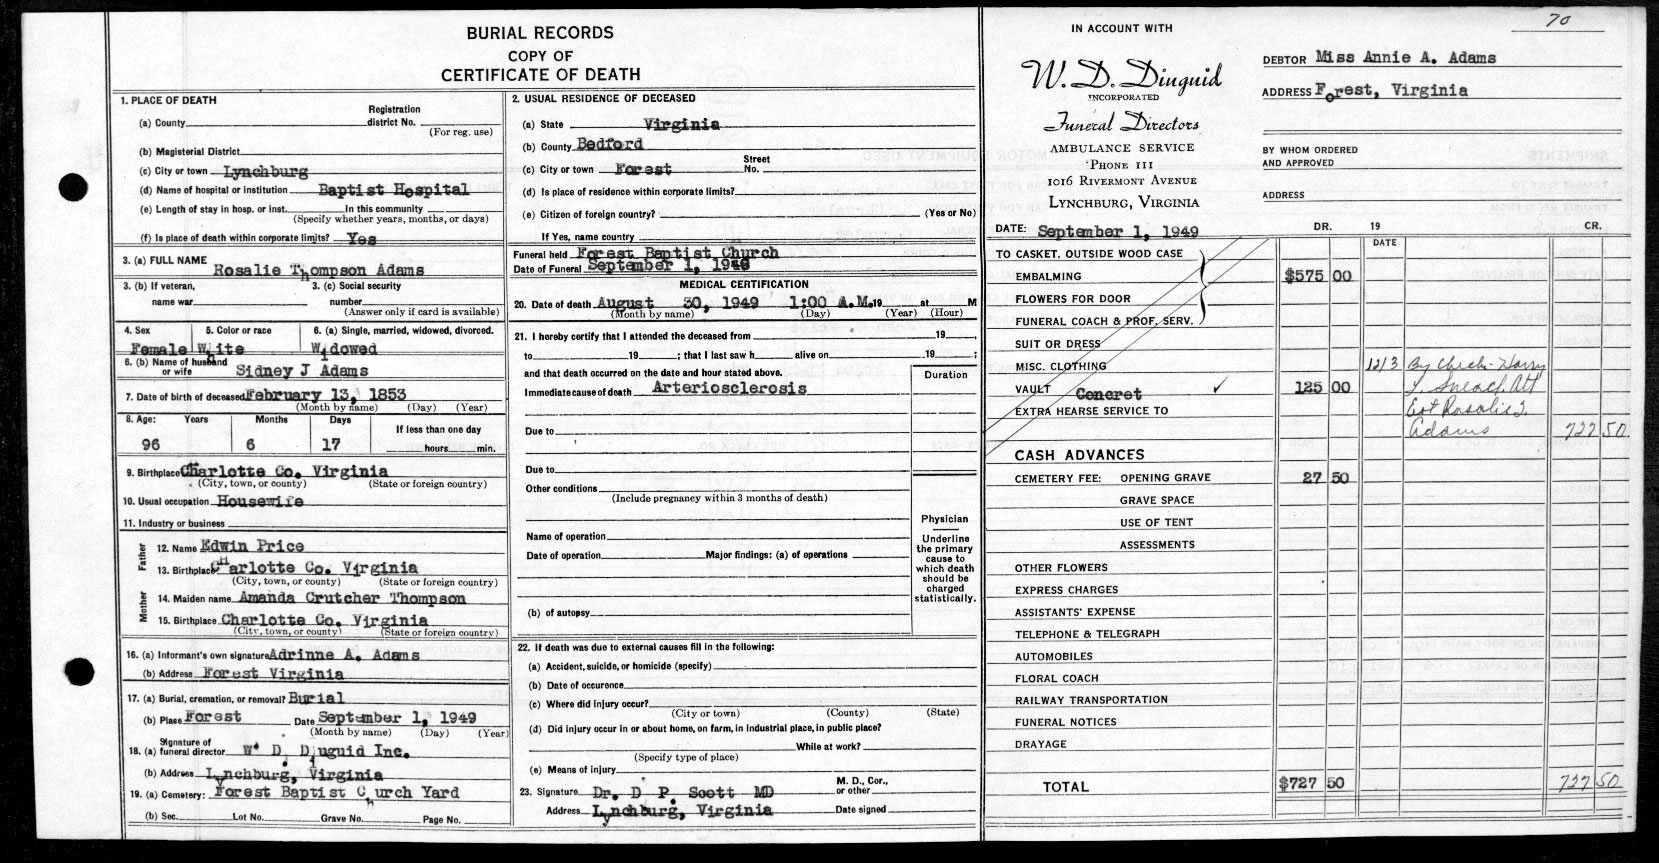 70
BURIAL RECORDS
COPY OF
CERTIFICATE OF DEATH
1. PLACE OF DEATH
Registration
(a) County district No.
(For reg. use)
(b) Magisterial District
(c) City or town Lynchburg
(d) Name of hospital or institution Baptist Hospital
(e) Length of stay in hosp. or inst. In this community
(Specify whether years, months, or days)
(f) Is place of death within corporate limits? Yes
3. (a) FULL NAME Rosalie Thompson Adams
3. (b) If veteran, 3. (c) Social security
name war number
(Answer only if card is available)
4. Sex 5. Color or race 6. (a) Single, married, widowed, divorced.
Female White Widowed
6. (b) Name of husband
or wife Sidney J Adams
7. Date of birth of deceased February 13, 1853
(Month by name) (Day) (Year)
8. Age: Years Months Days If less than one day
96 6 17 hours min.
9. Birthplace Charlotte Co. Virginia
(City, town, or county) (State or foreign country)
10. Usual occupation Housewife
11. Industry or business
Father
12. Name Edwin Price
13. Birthplace CHarlotte Co. Virginia
(City, town, or county) (State or foreign country)
Mother
14. Maiden name Amanda Crutcher Thompson
15. Birthplace Charlotte Co. Virginia
(City, town, or county) (State or foreign country)
16. (a) Informant's own signature Adrinne A. Adams
(b) Address Forest Virginia
17. (a) Burial, cremation, or removal? Burial
(b) Place Forest Date September 1, 1949
(Month by name) (Day) (Year)
Signature of
18. (a) funeral director W. D. Diuguid Inc.
(b) Address Lynchburg, Virginia
19. (a) Cemetery: Forest Baptist Church Yard
(b) Sec. Lot No. Grave No. Page No.
2. USUAL RESIDENCE OF DECEASED
(a) State Virginia
(b) County Bedford
(c) City or town Forest Street No.
(d) Is place of residence within corporate limits?
(e) Citizen of foreign country? (Yes or No)
If Yes, name country
Funeral held Forest Baptist Church
Date of Funeral September 1, 1949
MEDICAL CERTIFICATION
20. Date of death August 30, 1949 1:00 A.M. 19 at M
(Month by name) (Day) (Year) (Hour)
21. I hereby certify that I attended the deceased from 19 ,
to 19 ; that I last saw h alive on 19 ;
and that death occurred on the date and hour stated above. Duration
Immediate cause of death Arteriosclerosis
Due to
Due to
Other conditions
(Include pregnancy within 3 months of death)
Name of operation
Date of operation Major findings: (a) of operations
(b) of autopsy
Physician
Underline
the primary
cause to
which death
should be
charged
statistically.
22. If death was due to external causes fill in the following:
(a) Accident, suicide, or homicide (specify)
(b) Date of occurence
(c) Where did injury occur?
(City or town) (County) (State)
(d) Did injury occur in or about home, on farm, in industrial place, in public place?
While at work?
(Specify type of place)
(e) Means of injury
M. D., Cor.,
23. Signature Dr. D P. Scott MD or other
Address Lynchburg, Virginia Date signed
IN ACCOUNT WITH
W. D. Diuguid
INCORPORATED
Funeral Directors
AMBULANCE SERVICE
PHONE 111
1016 RIVERMONT AVENUE
LYNCHBURG, VIRGINIA
DEBTOR Miss Annie A. Adams
ADDRESS Forest, Virginia
BY WHOM ORDERED
AND APPROVED
ADDRESS
DATE: September 1, 1949 DR. 19 CR.
DATE
TO CASKET, OUTSIDE WOOD CASE
EMBALMING $575 00
FLOWERS FOR DOOR
FUNERAL COACH & PROF. SERV.
SUIT OR DRESS
MISC. CLOTHING 12/3 By Check - Harry
VAULT Concret ✓ 125 00
EXTRA HEARSE SERVICE TO Est Rosalie T.
Adams 727 50
CASH ADVANCES
CEMETERY FEE: OPENING GRAVE 27 50
GRAVE SPACE
USE OF TENT
ASSESSMENTS
OTHER FLOWERS
EXPRESS CHARGES
ASSISTANTS' EXPENSE
TELEPHONE & TELEGRAPH
AUTOMOBILES
FLORAL COACH
RAILWAY TRANSPORTATION
FUNERAL NOTICES
DRAYAGE
TOTAL $727 50 727 50